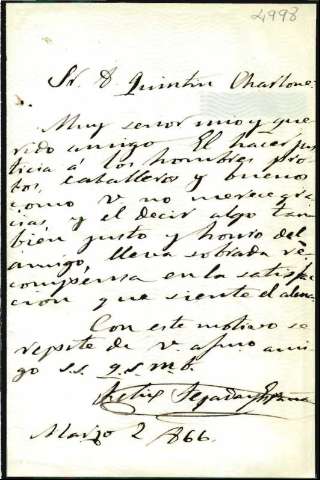 4998
Sr. D Quintin Charlone
Muy señor mio y que
rido amigo El hacer jus
ticia á los hombres pro
bos, caballeros y buenos
como V no merece gra
cias, y el decir algo tam
bién justo y honro del
amigo, lleva sobrada re
compensa en la satisfac
cion que siente el alma.
Con este motivo se
repite de V. afmo ami
go s.s. q.s.m.b.
Felix Tejada y España
Marzo 2 866.